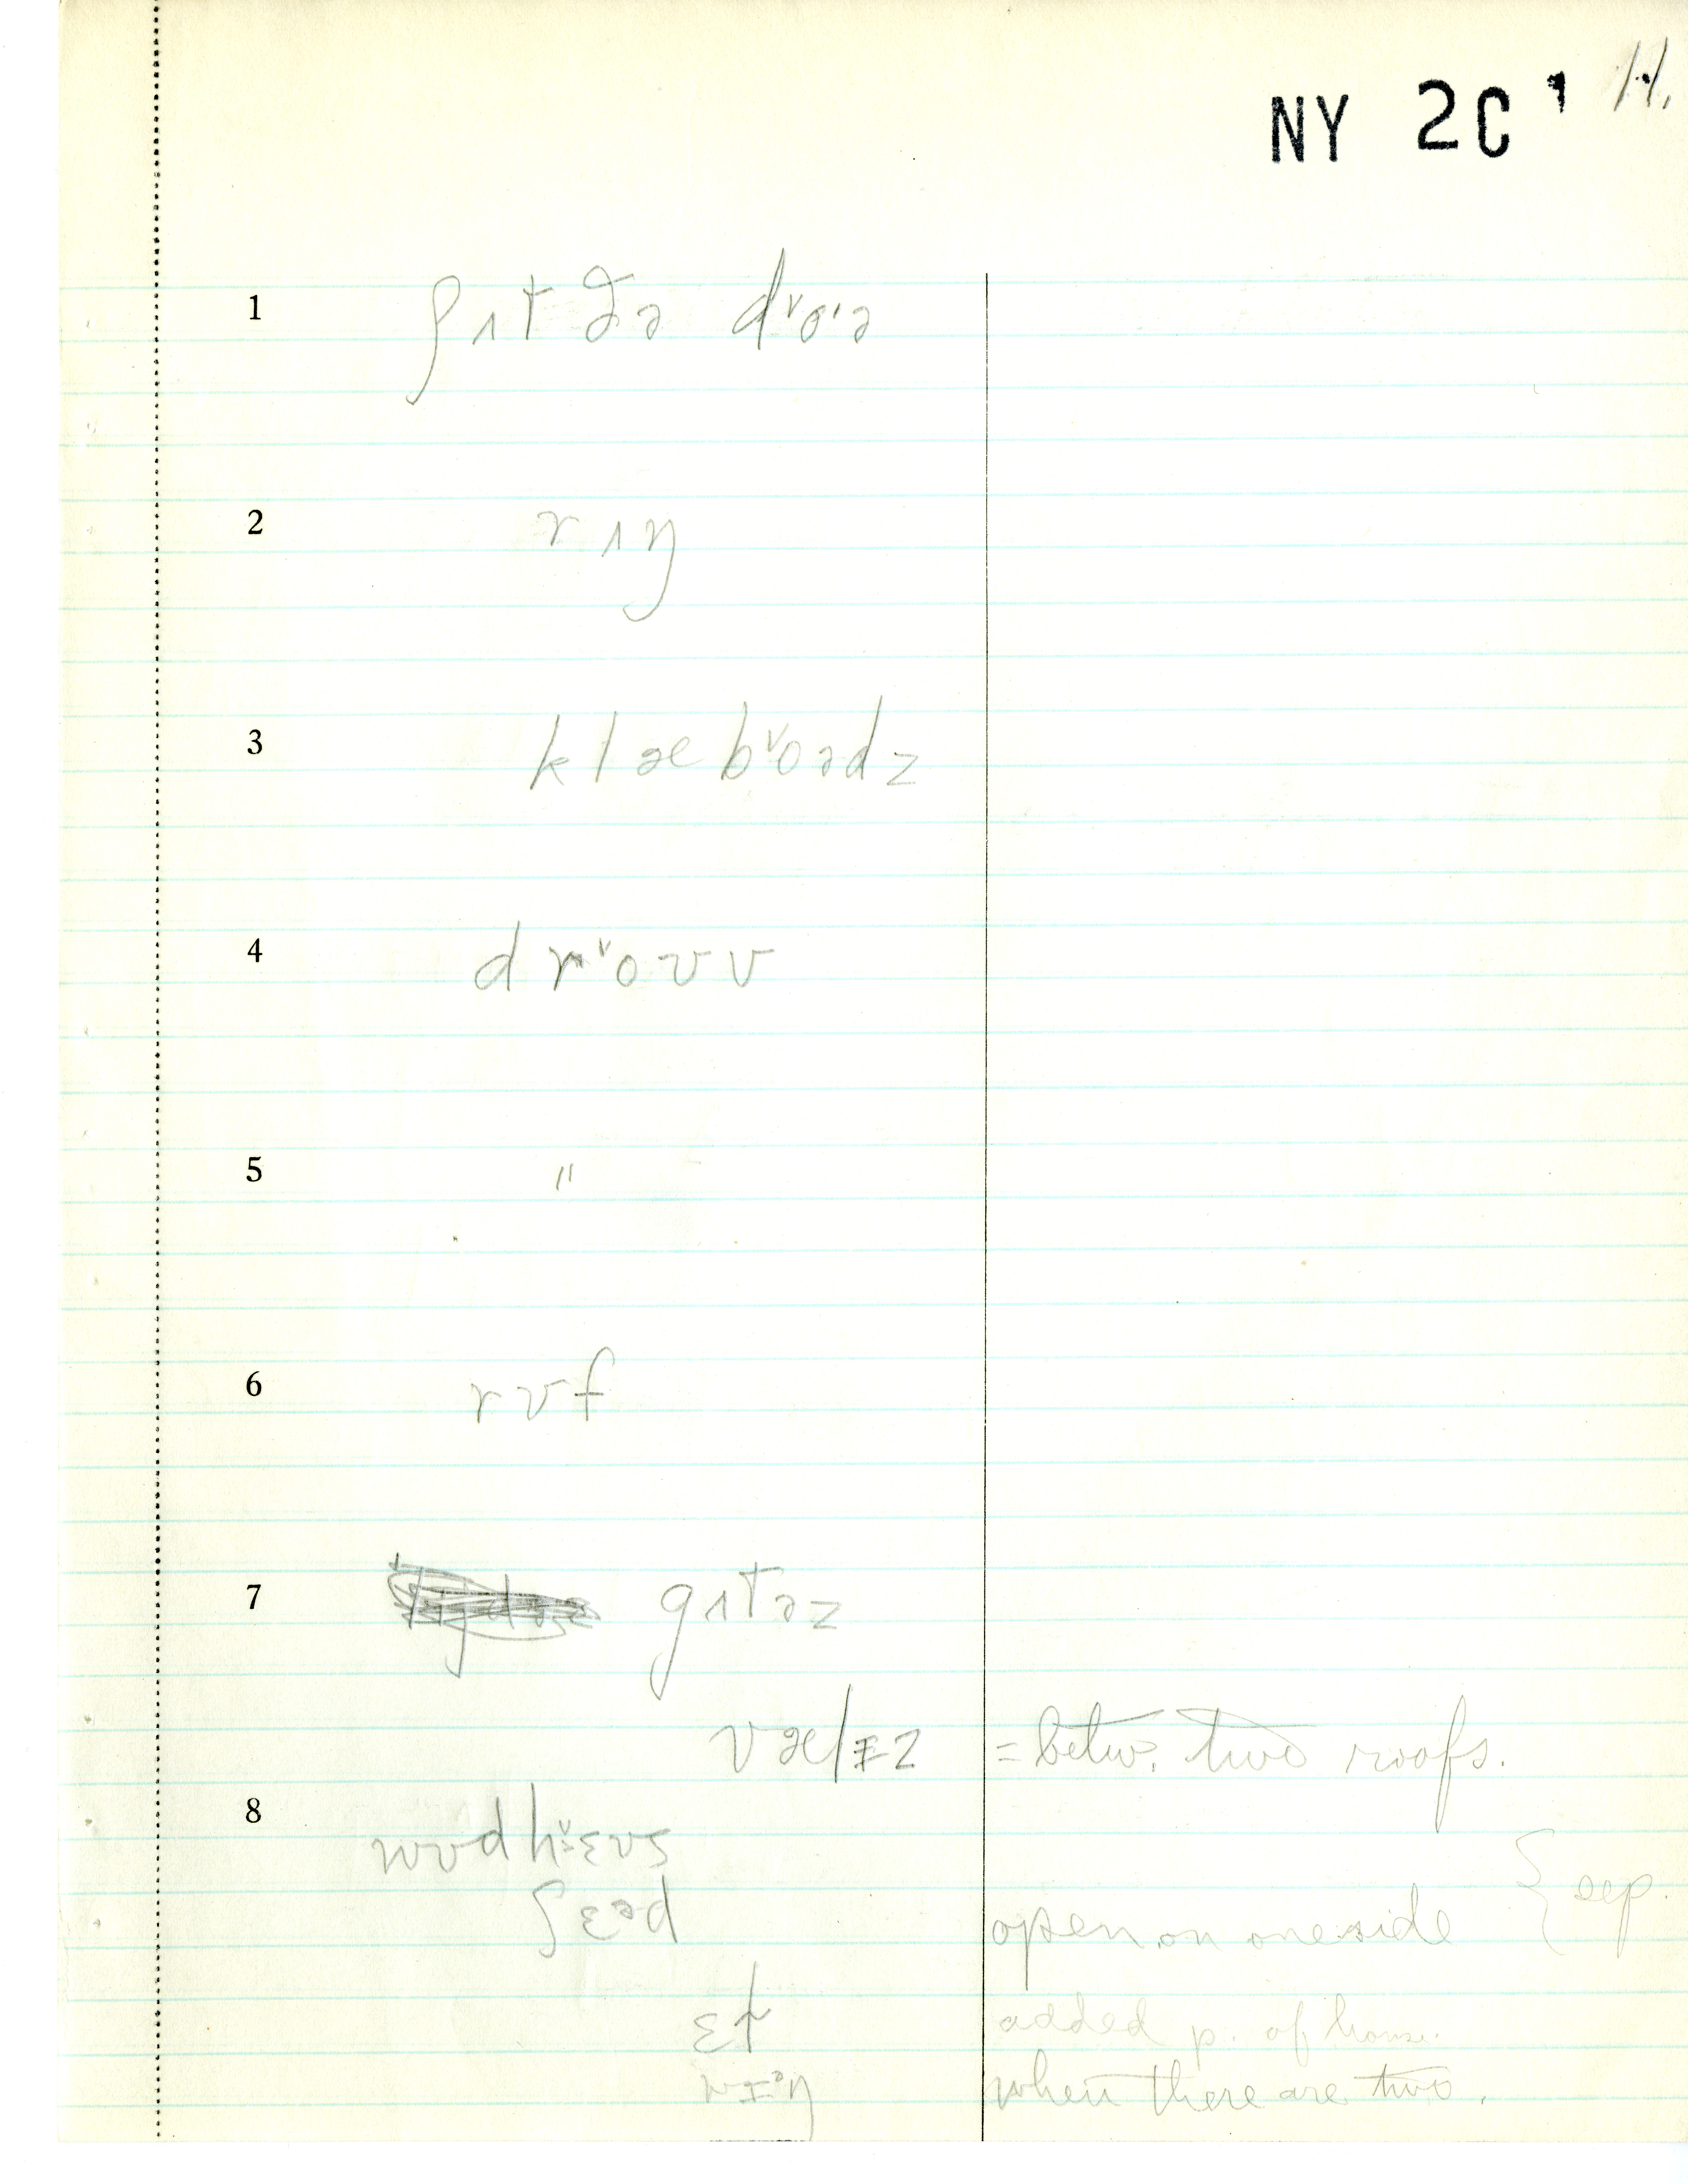 NY 2C 1 11.
1 ʃʌt ðə d˅o·ə
2 rʌŋ
3 klæb˅oədz
4 dr˅oʊv
5 "
6 rʊf
7 gʌtəz
vælɪz = betw. two roofs.
8 wʊdh˅ɛʊs
ʃɛᵊd open on one side { sep.
ɛl added p. of house.
wɪᵊŋ when there are two.